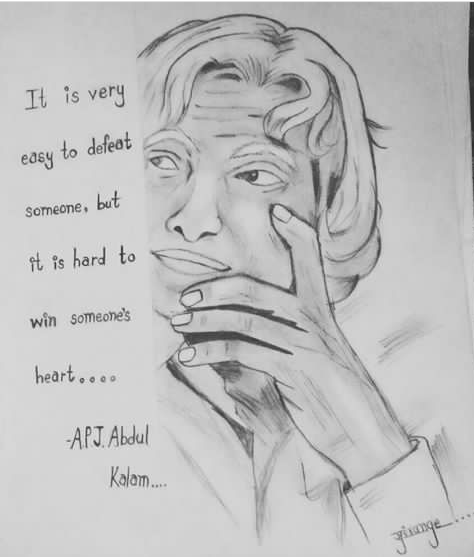 It is very
easy to defeat
someone, but
it is hard to
win someone's
heart....
-A.P.J. Abdul
Kalam....